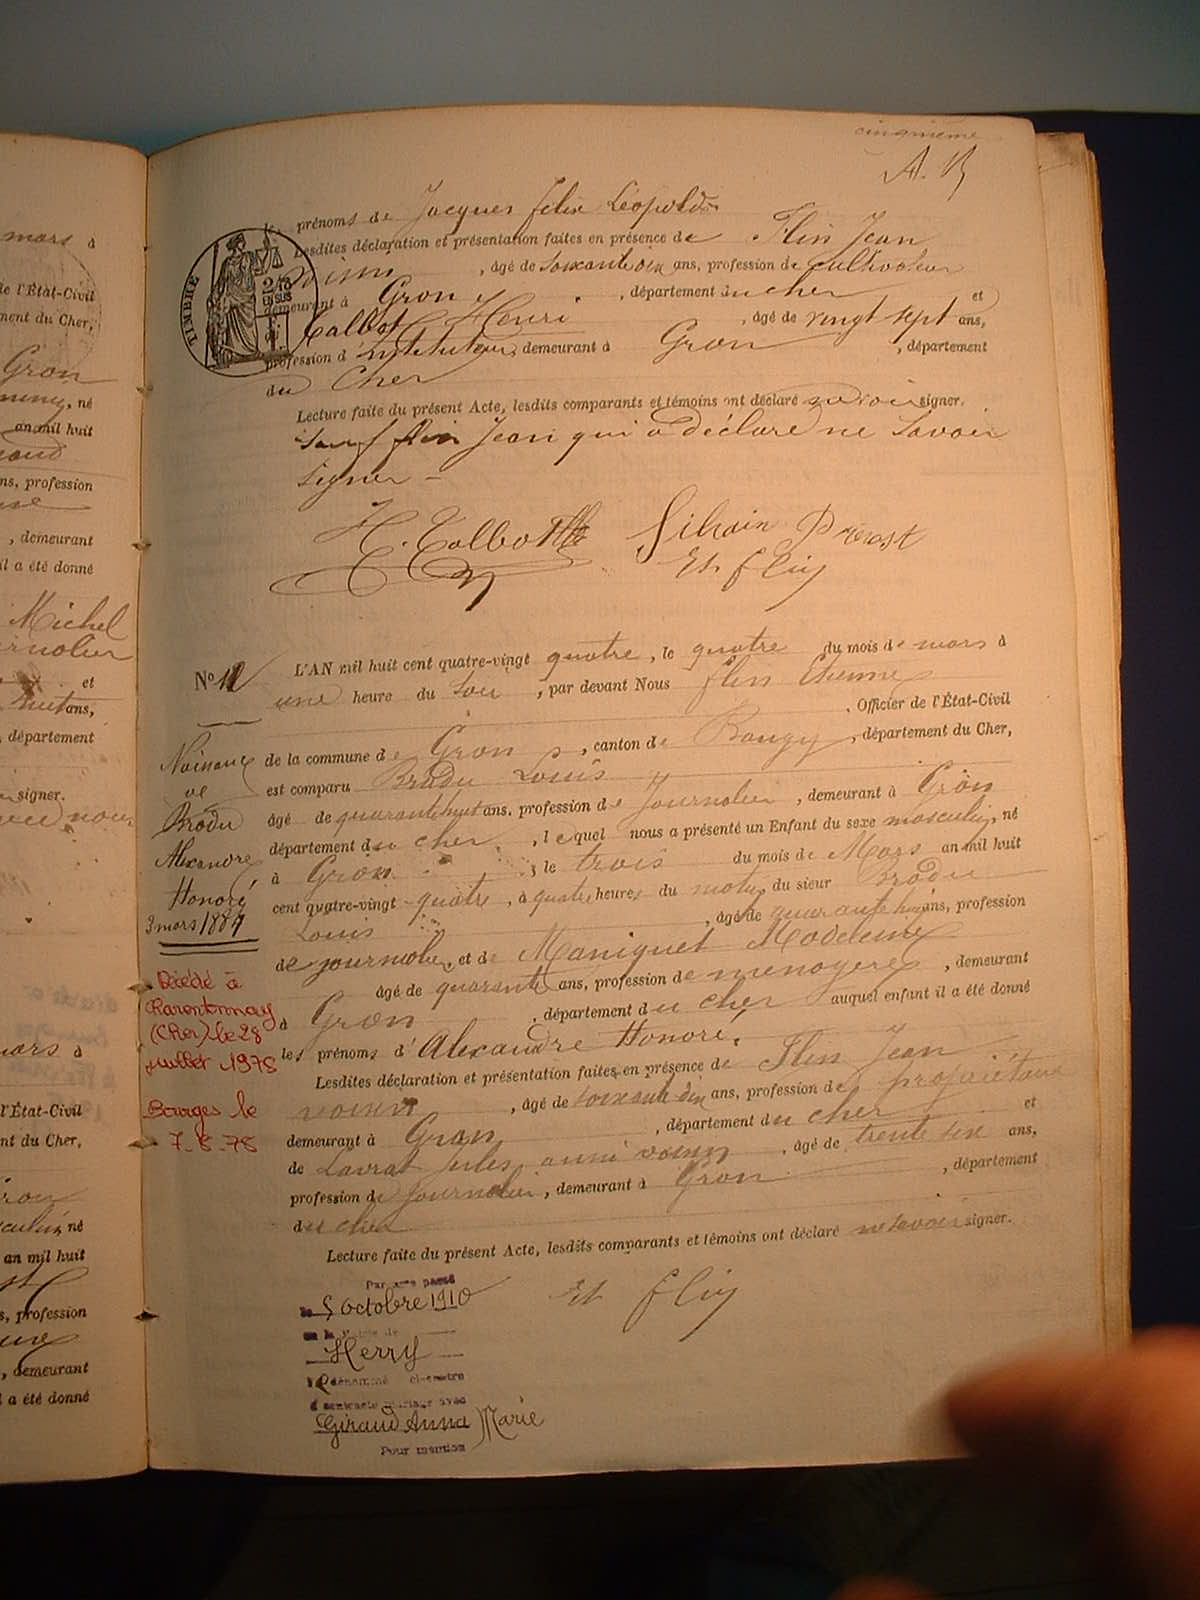 cinquième
A. B
les prénoms de Jacques Félix Léopold
Lesdites déclaration et présentation faites en présence de Flin Jean
voisin, âgé de soixante dix ans, profession de cultivateur
demeurant à Gron, département du cher et
Talbot Henri, âgé de vingt sept ans,
profession d'instituteur, demeurant à Gron, département
du Cher
TIMBRE
Lecture faite du présent Acte, lesdits comparants et témoins ont déclaré savoir signer.
sauf flin Jean qui a déclaré ne savoir
signer -
H. Talbot Silvain Prevost
Et. flin
No 12
L'AN mil huit cent quatre-vingt quatre, le quatre du mois de mars à
une heure du soir, par devant Nous flin Etienne
, Officier de l'État-Civil
de la commune de Gron, canton de Baugy, département du Cher,
est comparu Brodu Louis
âgé de quarante huit ans, profession de Journalier, demeurant à Gron
département du cher, lequel nous a présenté un Enfant du sexe masculin, né
à Gron ; le trois du mois de Mars an mil huit
cent quatre-vingt quatre, à quatre heures du matin, du sieur Brodu
Louis, âgé de quarante huit ans, profession
de journalier, et de Maniquet Madeleine
âgé de quarante ans, profession de menagere, demeurant
à Gron, département du cher auquel enfant il a été donné
les prénoms d'Alexandre Honoré.
Lesdites déclaration et présentation faites en présence de Flin Jean
voisin, âgé de soixante dix ans, profession de propriétaire
demeurant à Gron, département du cher et
de Lavrat Jules, ami voisin, âgé de trente six ans,
profession de Journalier, demeurant à Gron, département
du cher
Lecture faite du présent Acte, lesdits comparants et témoins ont déclaré ne savoir signer.
Et flin
Naissance
de
Brodu
Alexandre
Honoré
3 mars 1884
Décédé à
Charentonnay
(Cher) le 28
juillet 1978
Bourges le
7-8-78
Par acte passé
le 5 octobre 1910
en la Mairie de
Herry
le dénommé ci-contre
a contracté mariage avec
Giraud Anna Marie
Pour mention
mars à
de l'État-Civil
ment du Cher,
Gron
, né
an mil huit
ns, profession
, demeurant
il a été donné
Michel
journalier
et
huit ans,
, département
signer.
avec nous
mars à
l'État-Civil
nt du Cher,
Gron
masculin, né
an mil huit
s, profession
, demeurant
l a été donné